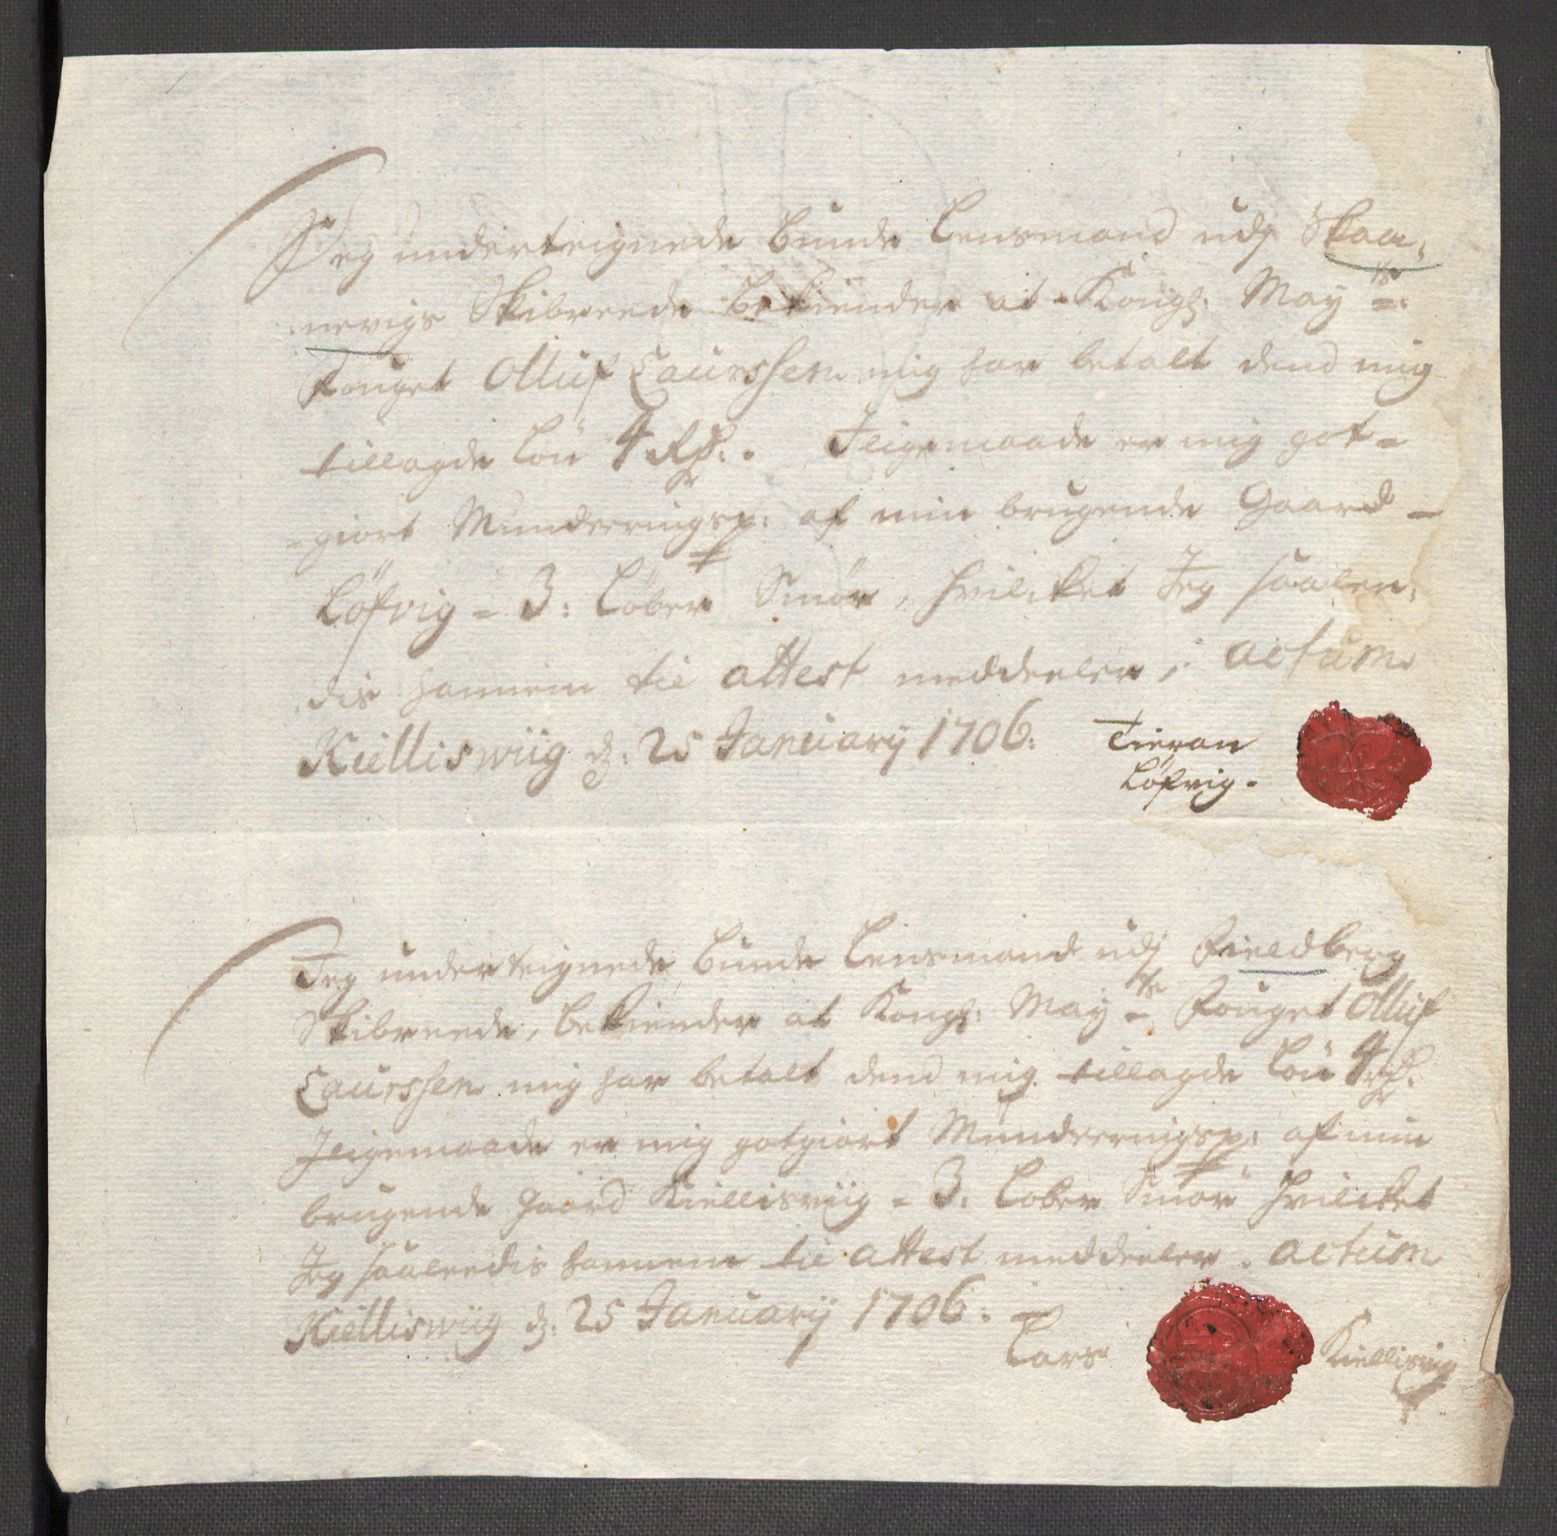 Jeg underteignede Bunde Lensmand udj Skaa,
nevigs Skibreede Bekiender at Kongl: May ts:
Fouget Olluf Laurssen mig har betalt dend mig
tillagde Lön 4 Rd: . Jligemaade er mig got-
-giort Munderingsp: af min brugende Gaard -
Löfvig - 3: Löber Smör, hvilcket Jeg saalen,
dis hannem til attest meddeeler, actum
Kielliswiig d: 25 Januarij 1706:
Tieran
Löfvig.
Jeg underteignede Bunde Lensmand udj Fieldberg
Skibreede, bekiender at Kongl: May ts Fouget Olluf
Laurssen mig har betalt dend mig tillagde Lön 4 Rd.
Jligemaade er mig gotgiort Munderringsp: af min
brugende gaard Kiellisviig - 3. Løber Smör hvilcket
Jeg saaleedis hannem til attest meddeeler. actum
Kielliswiig d: 25 Januarij 1706: -
Lars Kiellisvig